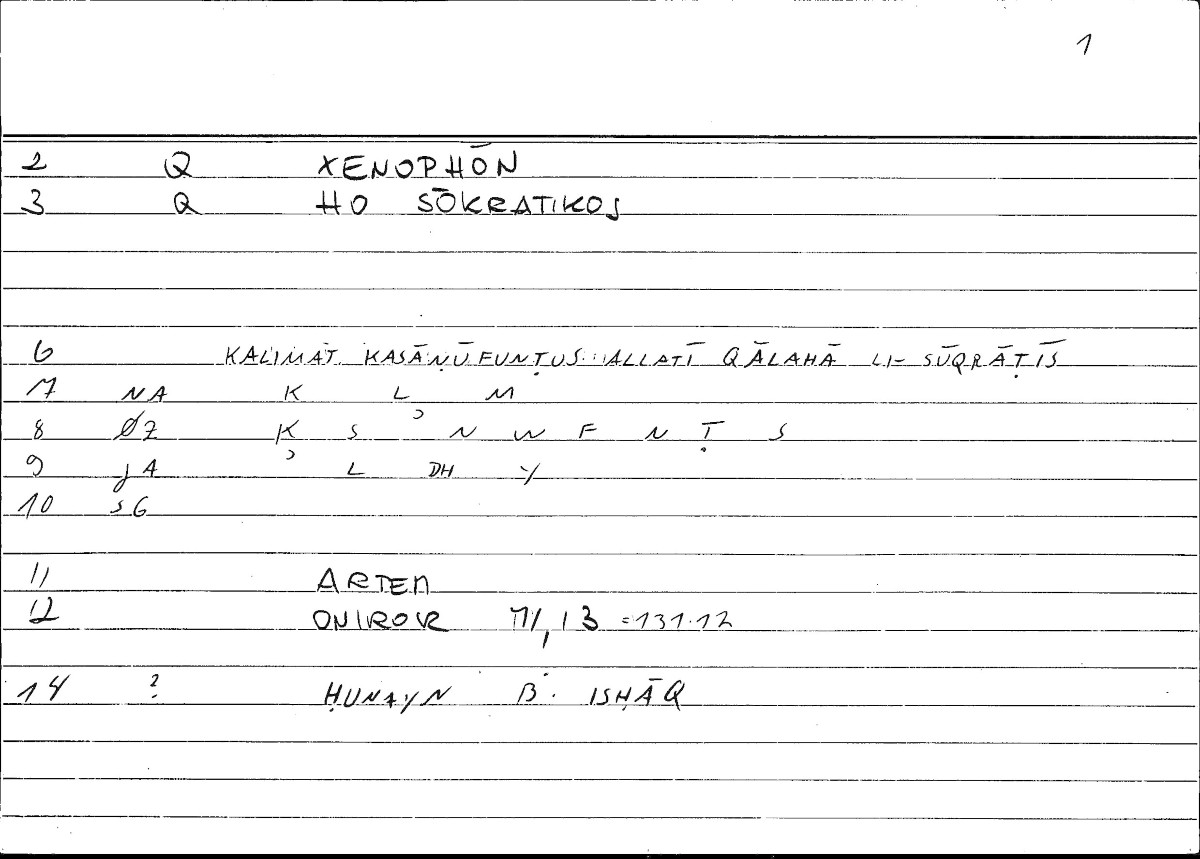 1
2 Q XENOPHŌN
3 Q HO SŌKRATIKOS
6 KALIMĀT KASĀṆŪFUNṬUS ALLATĪ QĀLAHĀ LI- SŪQRĀṬĪS
7 NA K L M
8 ØZ K S ʾ N W F N Ṭ S
9 JA ʾ L DH Y
10 SG
11 ARTEM
12 ONIROKR 131.12
14 ? ḤUNAYN B. ISḤĀQ